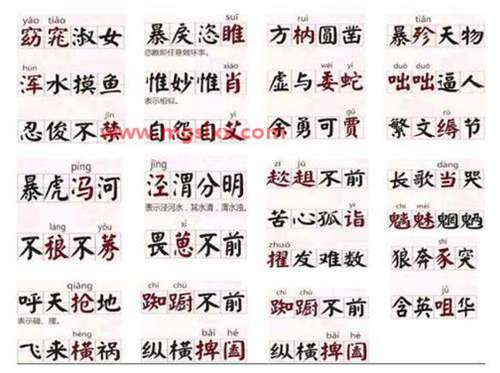 yǎo tiǎo
窈窕淑女
suī
暴戾恣睢
ruì
方枘圆凿
tiǎn
暴殄天物
hún
浑水摸鱼
惟妙惟肖
表示相似。
wēi yí
虚与委蛇
duō duō
咄咄逼人
jīn
忍俊不禁
xiào yì
自怨自艾
gǔ
余勇可贾
rù
繁文缛节
www.mgslxx.com
píng
暴虎冯河
jīng
泾渭分明
表示泾河水，其水清，渭水浊。
zī jū
趑趄不前
dàng
长歌当哭
láng yǒu
不稂不莠
xǐ
畏葸不前
yì
苦心孤诣
魑魅魍魉
zhuó
擢发难数
狼奔豕突
qiāng
呼天抢地
表示碰、撞。
chí chú
踟蹰不前
chí chú
踟蹰不前
含英咀华
hèng
飞来横祸
bǎi hé
纵横捭阖
bǎi hé
纵横捭阖